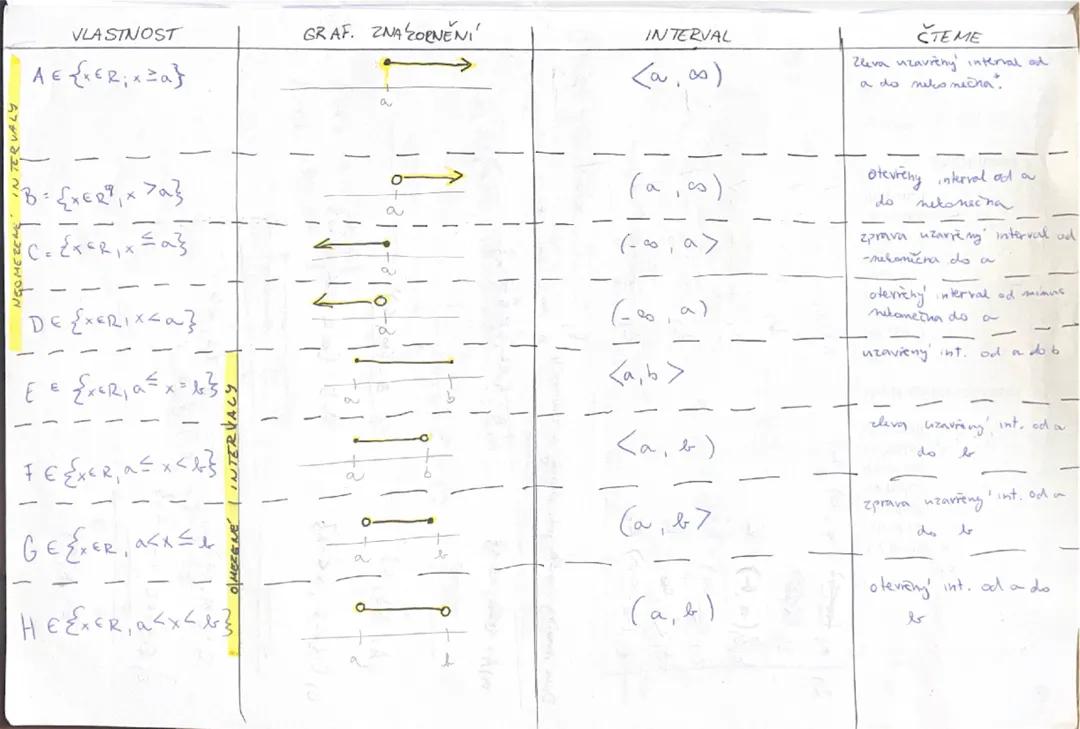 VLASTNOST GRAF. ZNÁZORNĚNÍ INTERVAL ČTEME
NEOMEZENÉ INTERVALY
A ∈ {x∈R; x ≥ a} a <a, ∞) zleva uzavřený interval od
a do nekonečna.
B = {x∈R, x > a} a (a, ∞) otevřený interval od a
do nekonečna
C = {x∈R, x ≤ a} a (-∞, a> zprava uzavřený interval od
-nekonečna do a
D ∈ {x∈R, x < a} a (-∞, a) otevřený interval od minus
nekonečna do a
OMEZENÉ INTERVALY
E ∈ {x∈R, a ≤ x = b} a b <a,b> uzavřený int. od a do b
F ∈ {x∈R, a ≤ x < b} a b <a, b) zleva uzavřený int. od a
do b
G ∈ {x∈R, a<x ≤ b a b (a, b> zprava uzavřený int. od a
do b
H ∈ {x∈R, a<x< b} a b (a, b) otevřený int. od a do
b